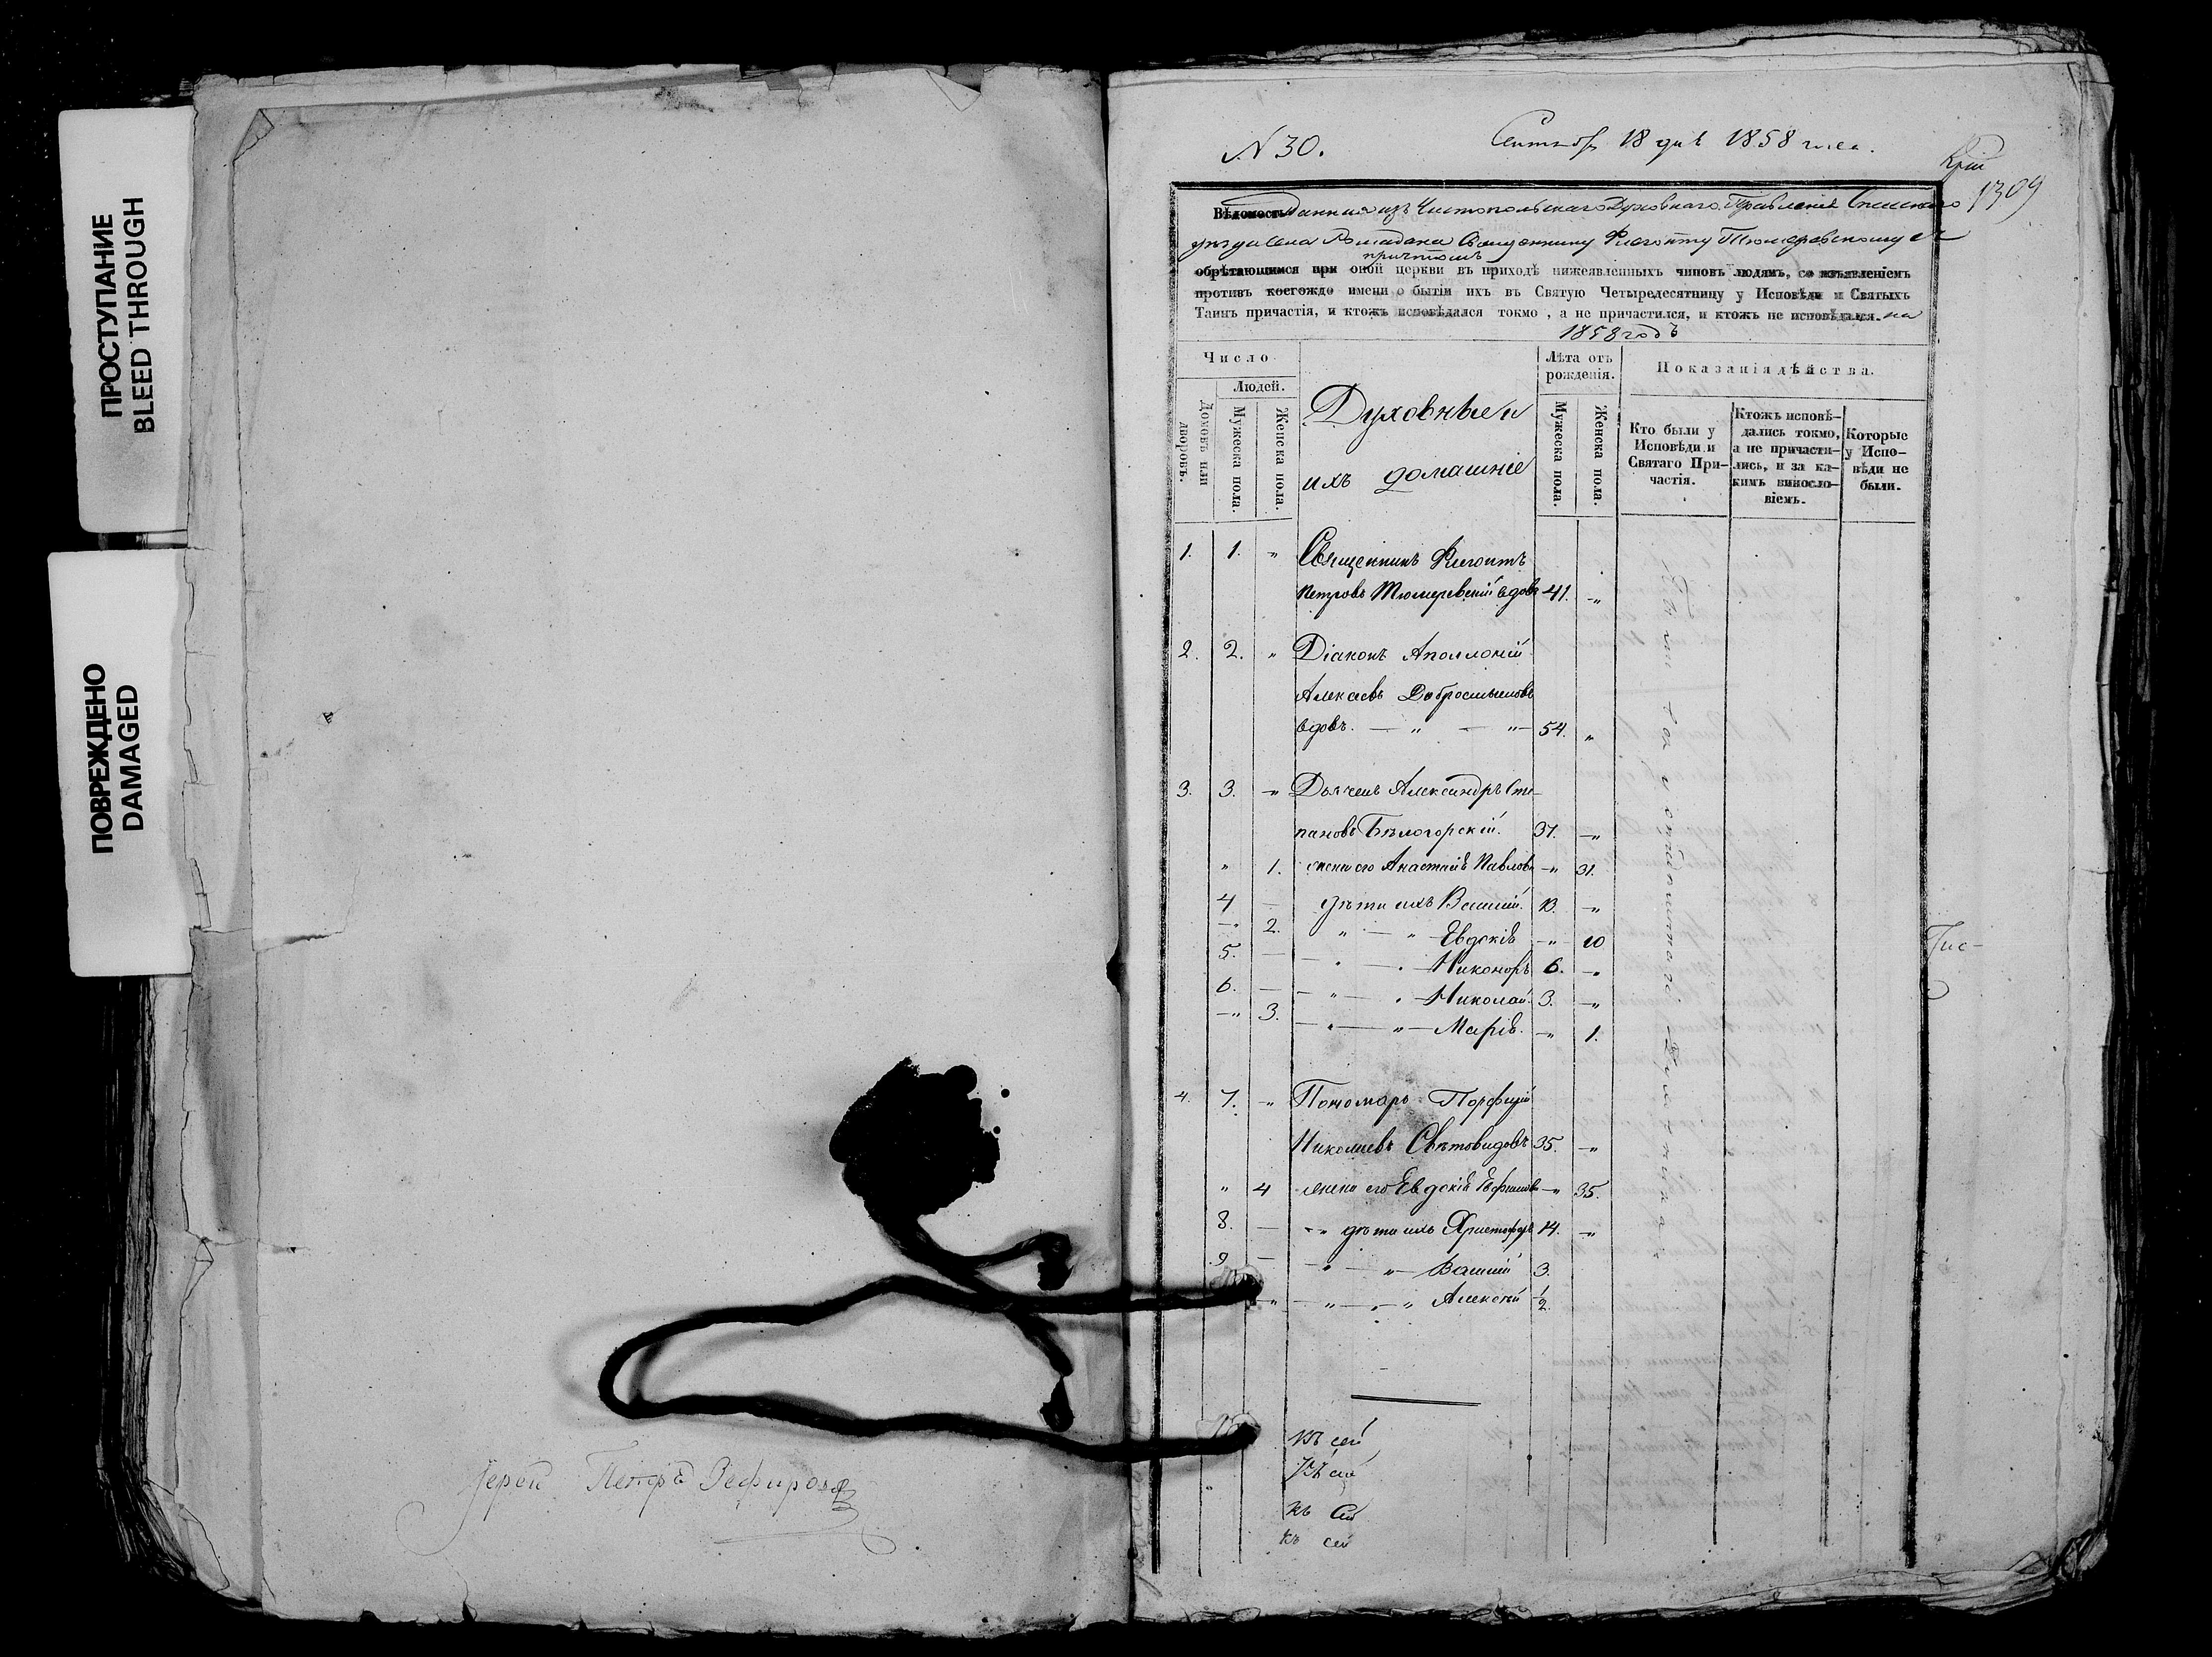 ПРОСТУПАНИЕ
BLEED THROUGH
ПОВРЕЖДЕНО
DAMAGED
Іерей Петръ Зефировъ
№ 30.
18 дня 1858 года.
1309
Вѣдомость Данная изъ Чистопольскаго Духовнаго Правленія Спасскаго
уѣзда села Священнику Флегонту Тюмеревскому съ
причтомъ
обрѣтающимся при оной церкви въ приходѣ нижеявленныхъ чиновъ людямъ, со изъявленіемъ
противъ коегождо имени о бытіи ихъ въ Святую Четыредесятницу у Исповѣди и Святыхъ
Таинъ причастія, и ктожъ исповѣдался токмо, а не причастился, и ктожъ не исповѣдался. на
1858 годъ
Число
Людей.
Домовъ или дворовъ.
Мужеска пола.
Женска пола.
Духовные и
ихъ домашніе
Лѣта отъ рожденія.
Мужеска пола.
Женска пола.
Показанія дѣйства.
Кто были у Исповѣди и Святаго При-частія.
Ктожъ исповѣ-дались токмо, а не причасти-лись, и за ка-кимъ виносло-віемъ.
Которые у Испо-вѣди не были.
1. 1. " Священникъ Флегонтъ
Петровъ Тюмеревскій вдовъ 41. "
2. 2. " Діаконъ Аполлоній
Алексѣевъ Добросмысловъ
вдовъ. — " — " — 54. "
3. 3. " Дьячекъ Александръ Сте-
пановъ Бѣлогорскій. 37. "
" 1. жена его Анастасія Павлова " 31.
4 — дѣти ихъ Василій. 13. "
" 2. " — " Евдокія " 10
5. — " — " Никоноръ 6. "
6. — " — " Николай 3. "
" 3. " — " Марія. " 1.
4. 7. " Пономарь Порфирій
Николаевъ Свѣтовидовъ 35. "
" 4 жена его Евдокія Ефимова " 35.
8. — " дѣти ихъ Христофоръ 14. "
9 — " — " Василій 3.
" — " — " Алексѣй 1/2.
Къ сей
Къ сей
къ Сей
къ сей